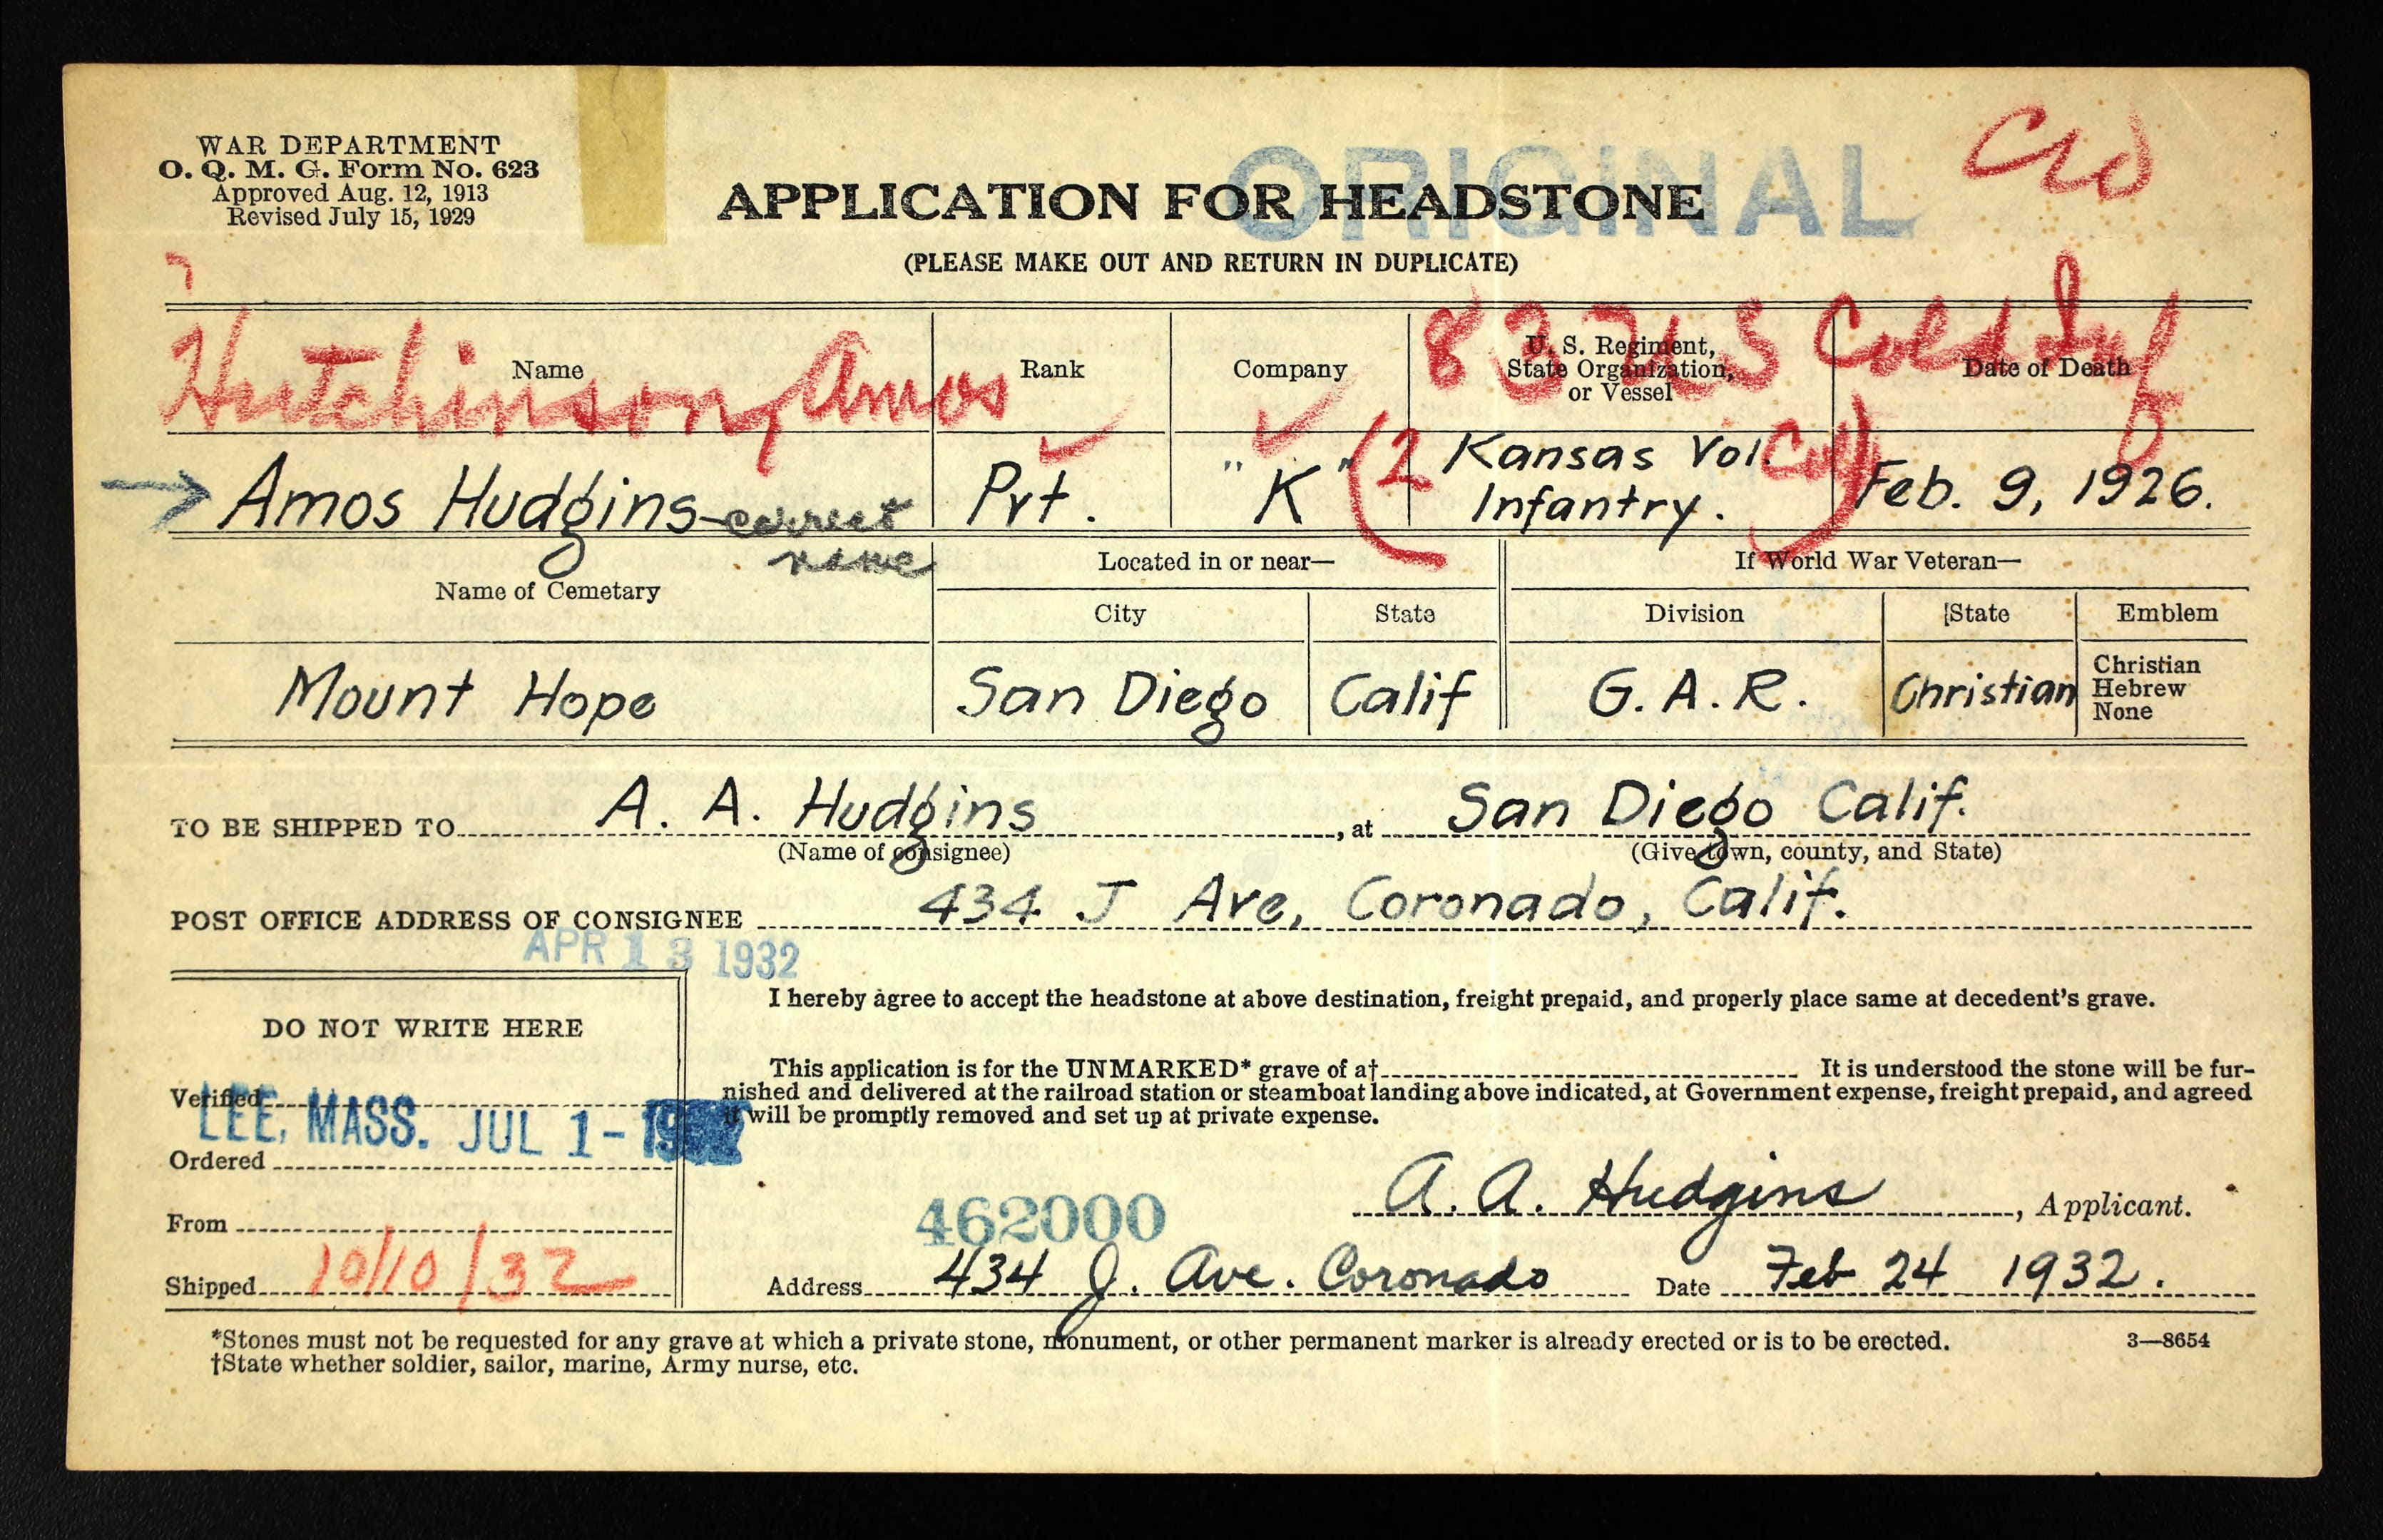 WAR DEPARTMENT
O. Q. M. G. Form No. 623
Approved Aug. 12, 1913
Revised July 15, 1929
ORIGINAL
CW
APPLICATION FOR HEADSTONE
(PLEASE MAKE OUT AND RETURN IN DUPLICATE)
?
Hutchinson, Amos
83 US Cold Inf
Name
Rank
Company
U. S. Regiment,
State Organization,
or Vessel
Date of Death
Amos Hudgins - correct
name
Pvt.
"K"
(2
Kansas Vol.
Infantry.
Col)
Feb. 9, 1926.
Name of Cemetary
Located in or near—
If World War Veteran—
City
State
Division
State
Emblem
Mount Hope
San Diego
Calif
G. A. R.
Christian
Christian
Hebrew
None
TO BE SHIPPED TO A. A. Hudgins, at San Diego Calif.
(Name of consignee) (Give town, county, and State)
POST OFFICE ADDRESS OF CONSIGNEE 434 J Ave, Coronado, Calif.
APR 13 1932
I hereby agree to accept the headstone at above destination, freight prepaid, and properly place same at decedent's grave.
DO NOT WRITE HERE
This application is for the UNMARKED* grave of a† It is understood the stone will be fur-
nished and delivered at the railroad station or steamboat landing above indicated, at Government expense, freight prepaid, and agreed
it will be promptly removed and set up at private expense.
Verified
LEE, MASS. JUL 1-
Ordered
A. A. Hudgins, Applicant.
From
462000
Shipped 10/10/32
Address 434 J. Ave. Coronado Date Feb 24 1932.
*Stones must not be requested for any grave at which a private stone, monument, or other permanent marker is already erected or is to be erected.
3—8654
†State whether soldier, sailor, marine, Army nurse, etc.